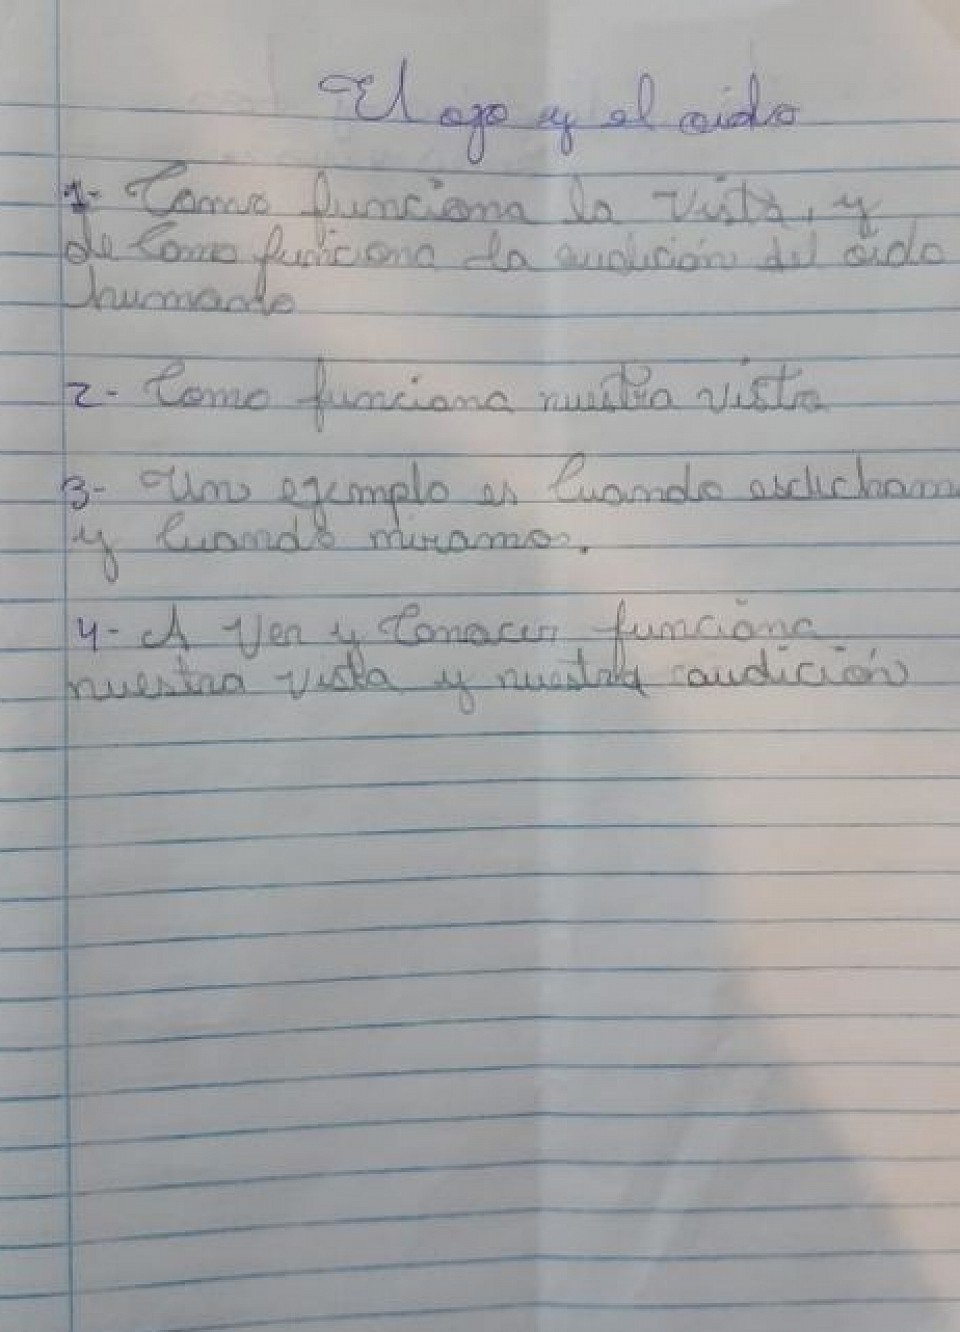 El ojo y el oido
1- Como funciona la vista, y
de como funciona la audición del oido
humano
2- Como funciona nuestra vista
3- Un ejemplo es cuando escucham
y cuando miramos.
4- A ver y conocer funciona
nuestra vista y nuestra audición